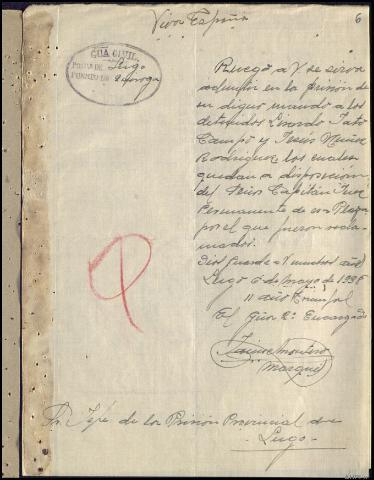 Viva España
6
GUA CIVIL
PUESTO DE Lugo
Quiroga
Ruego a V. se sirva
admitir en la prisión de
su digno mando a los
detenidos Lisardo Tato
Campo y Jesús Muñoz
Rodriguez, los cuales
quedan a disposición
del Señor Capitán Juez
Permanente de esa Plaza
por el que fueron recla-
mados.
Dios guarde a V muchos años
Lugo 6 de Mayo de 1938
II año Triunfal
El Encargado
Jaime Montero
Marqués
Sr. Jefe de la Prisión Provincial de
Lugo.-